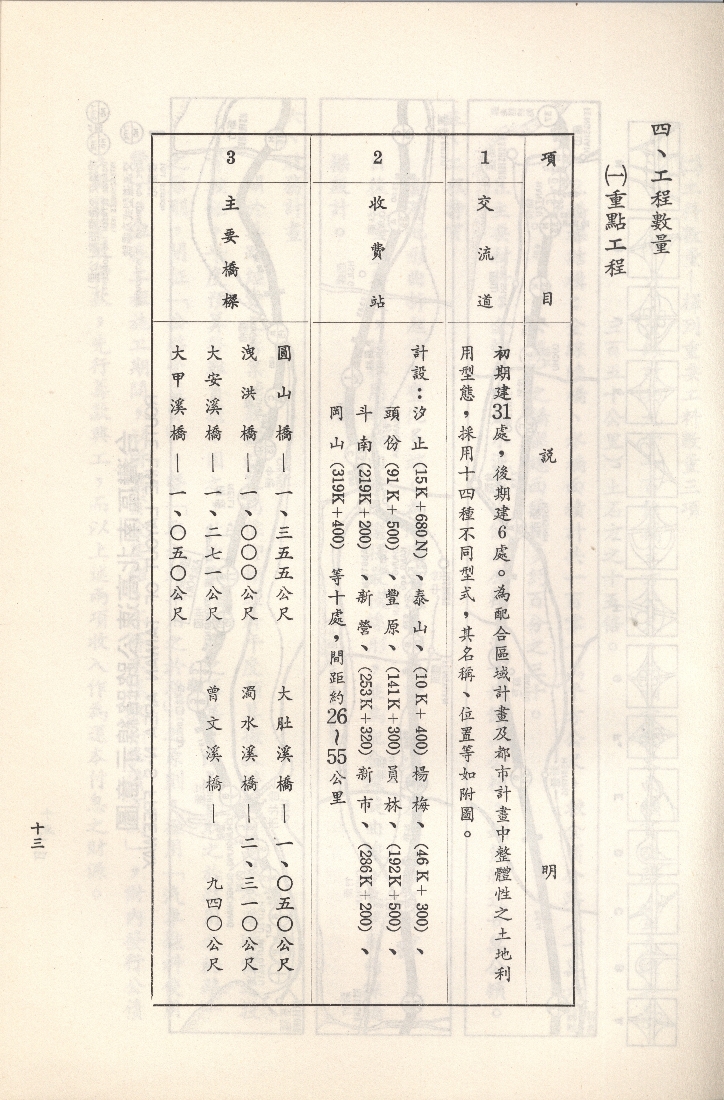 四、工程數量
㈠重點工程
項目
說明
1
交流道
初期建31處，後期建6處。為配合區域計畫及都市計畫中整體性之土地利
用型態，採用十四種不同型式，其名稱、位置等如附圖。
2
收費站
計設：汐止(15K+680N)、泰山、(10K+400)楊梅、(46K+300)、
頭份(91K+500)、豐原、(141K+300)員林、(192K+500)、
斗南(219K+200)、新營、(253K+320)新市、(286K+200)、
岡山(319K+400)等十處，間距約26~55公里
3
主要橋樑
圓山橋—一、三五五公尺 大肚溪橋—一、〇五〇公尺
洩洪橋—一、〇〇〇公尺 濁水溪橋—二、三一〇公尺
大安溪橋—一、二七一公尺 曾文溪橋—九四〇公尺
大甲溪橋—一、〇五〇公尺
十三